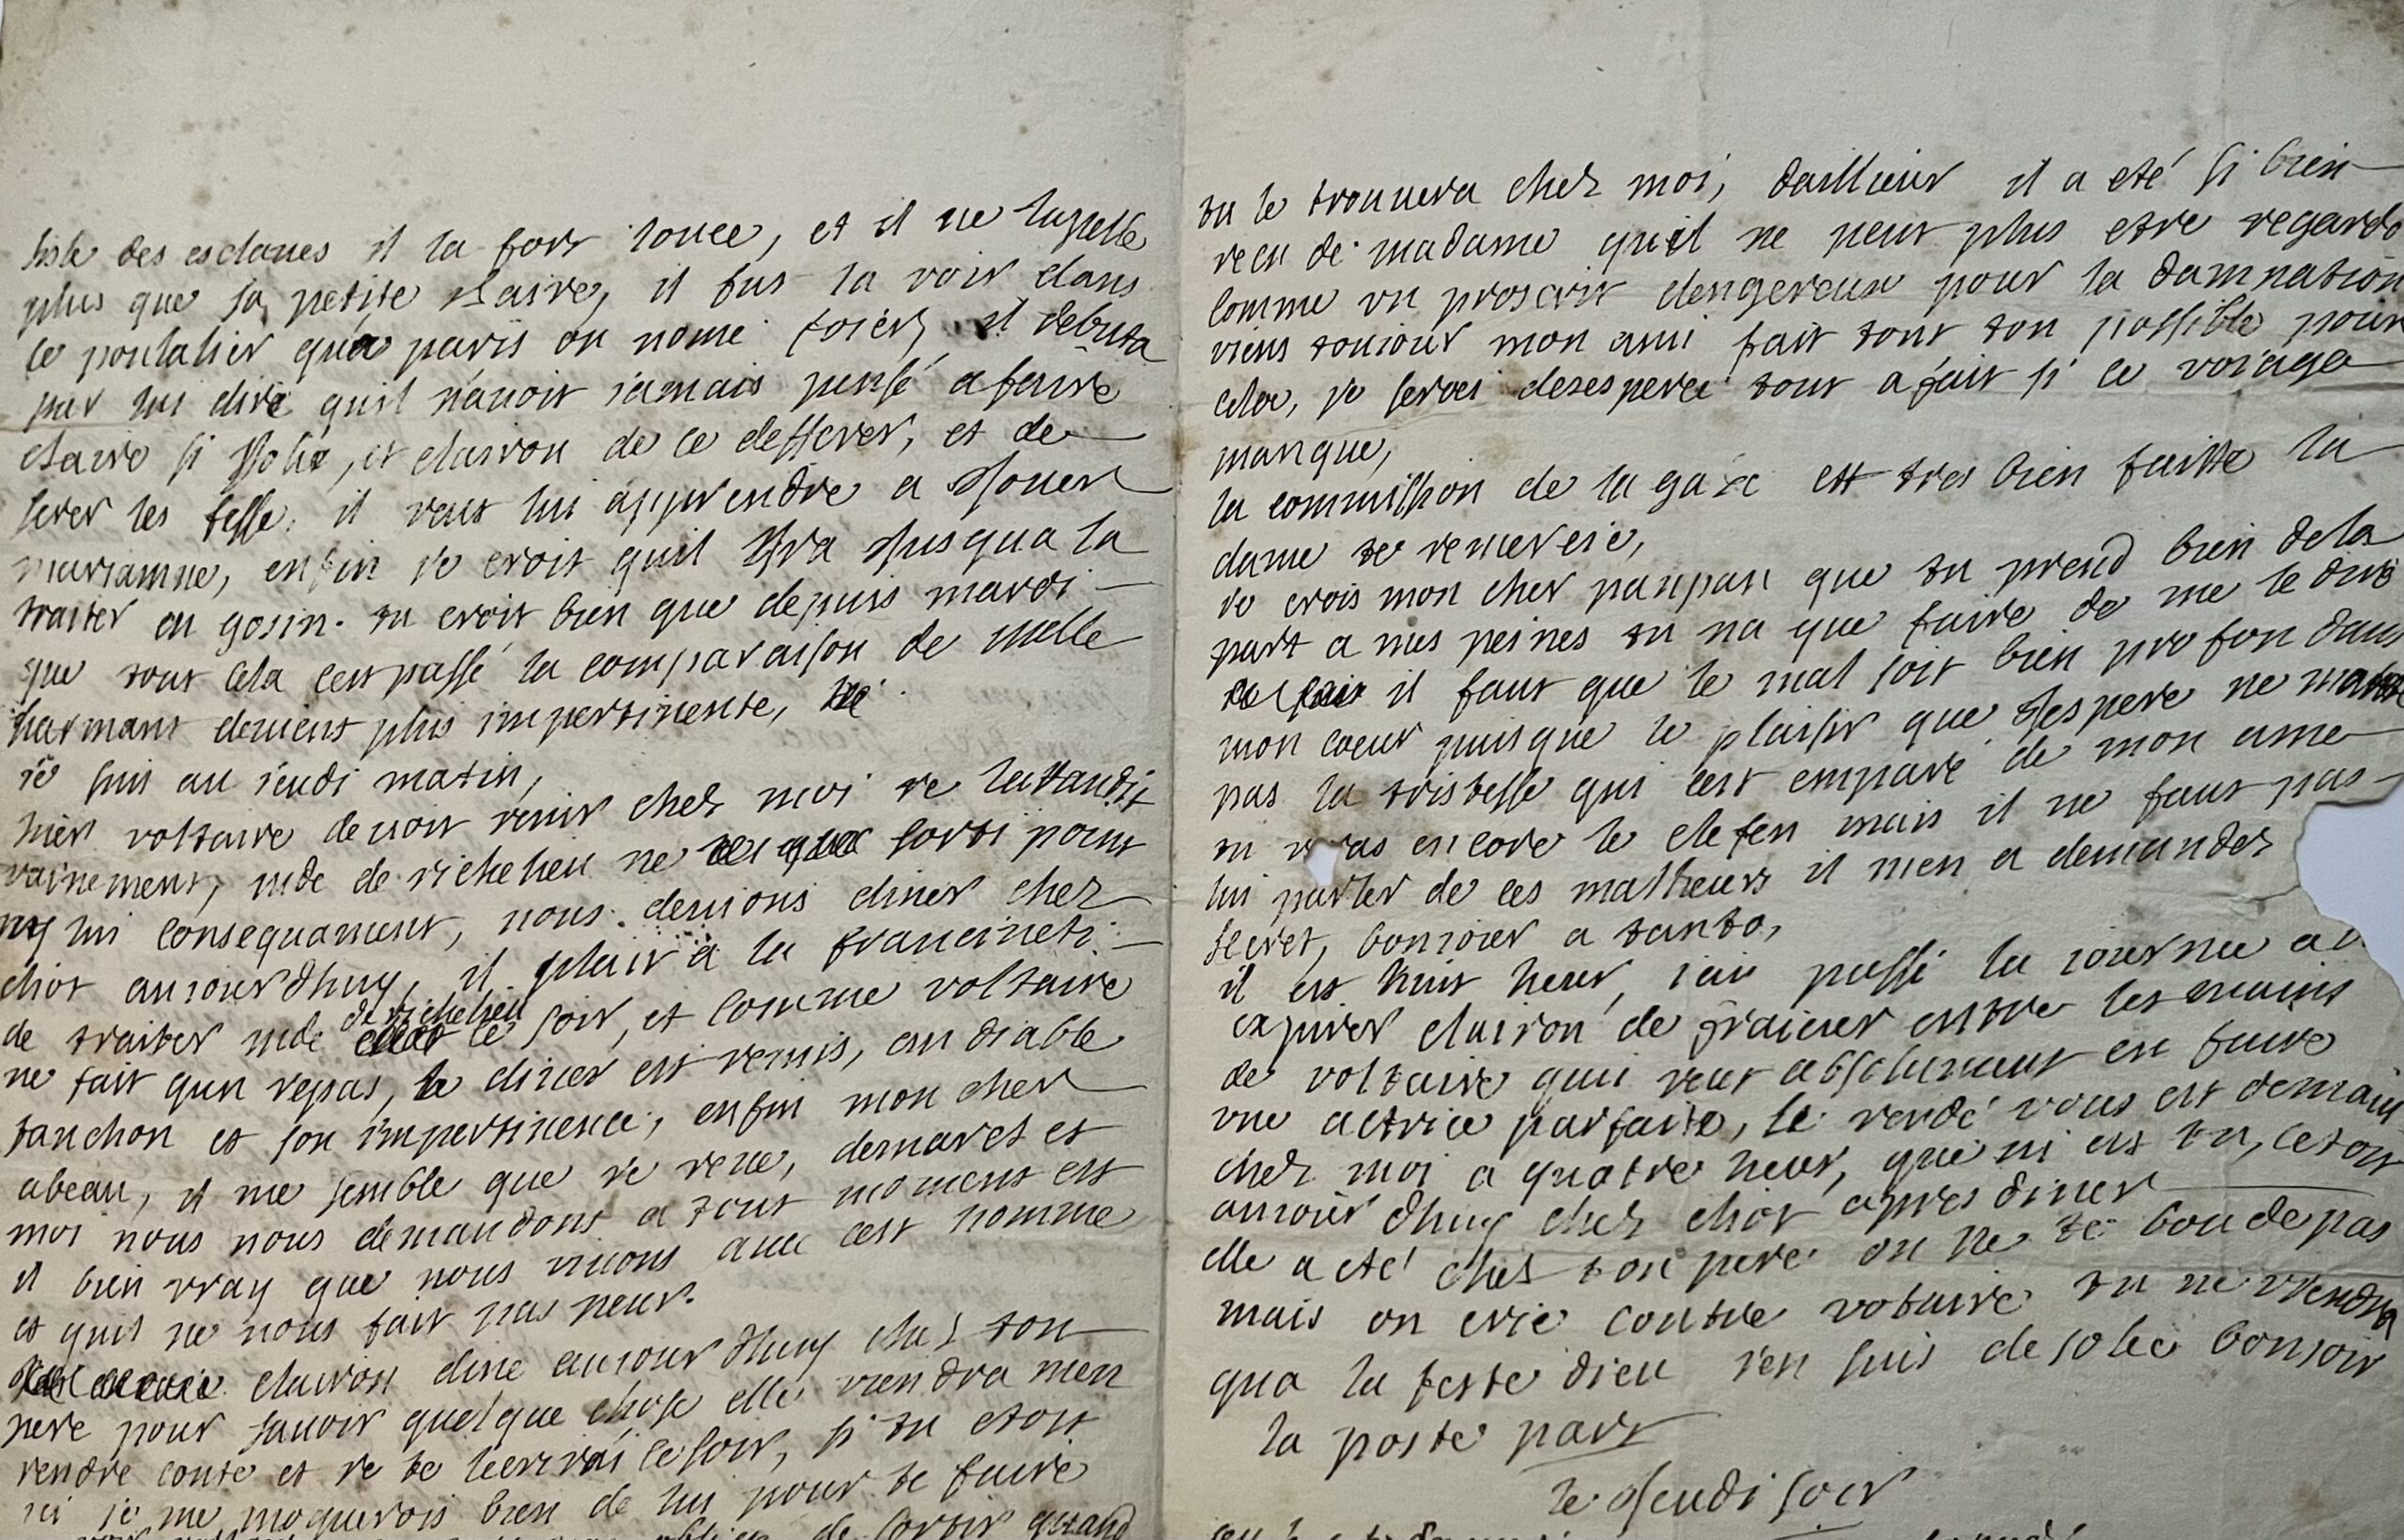 liste des esclaves il la fort louee, et il ne lapelle
plus que sa petite Zaire, il fut la voir dans
ce poulalier qu'a paris on nome foier, il debuta
par lui dire quil navoit iamais pensé a faire
Zaire si Jolie, et clairon de ce defferer, et de
serer les fesse. il veut lui apprendre a Jouer
mariamne, enfin ie croit quil Ira Jusqua la
traiter en gosin. tu croit bien que depuis mardi
que tout cela cest passé la comparaison de melle
harmant devient plus impertinente,
ie suis au ieudi matin,
hier voltaire devoit venir chez moi ie lattandit
vainement, mde de richelieu ne sorti point
ny lui consequament, nous devions diner chez
chot auiourdhuy, il plait a la francineti
de traiter mde de richelieu ce soir, et comme voltaire
ne fait qun repas, le diner est remis, au diable
fanchon et son impertinence, enfin mon cher
abeau, il me semble que ie reve, demaret et
moi nous nous demandons a tout moment est
il bien vray que nous vivons avec cest homme
et quil ne nous fait pas peur.
clairon dine auiourdhuy chez ton
pere pour savoir quelque chose elle viendra men
rendre conte et ie te lecrirai ce soir, si tu etoit
ici ie me moquerois bien de lui pour te faire
de sortir quand
tu le trouvera chez moi, dailleur il a eté si bien
recu de madame quil ne peut plus etre regardé
comme un proscrit dengereux pour la damnation
viens touiour mon ami fait tout ton possible pour
cela, ie serai desesperée tout a fait si ce voiage
manque,
la commission de la gaze est tres bien faitte la
dame te remercie,
ie crois mon cher panpan que tu prend bien de la
part a mes peines tu na que faire de me le dire
il faut que le mal soit bien profon dans
mon coeur puisque le plaisir que Jespere ne
pas la tristesse qui cest emparé de mon ame
tu encore le mais il ne faut pas
lui parler de ces malheurs il men a demander
secret, bonjour a tanto,
il est huit heur, iai passé la iournee a
expirer clairon de fraieur entre les mains
de voltaire qui veut absolument en faire
une actrice parfaite, le rendé vous est demain
chez moi a quatre heur, que ni est tu, cetoit
auiourdhuy chez chot apres diner
elle a eté chez ton pere on ne te boude pas
mais on crie contre votaire tu ne viendra
qua la feste dieu ien suis desolée bonsoir
la poste part
le Jeudi soir